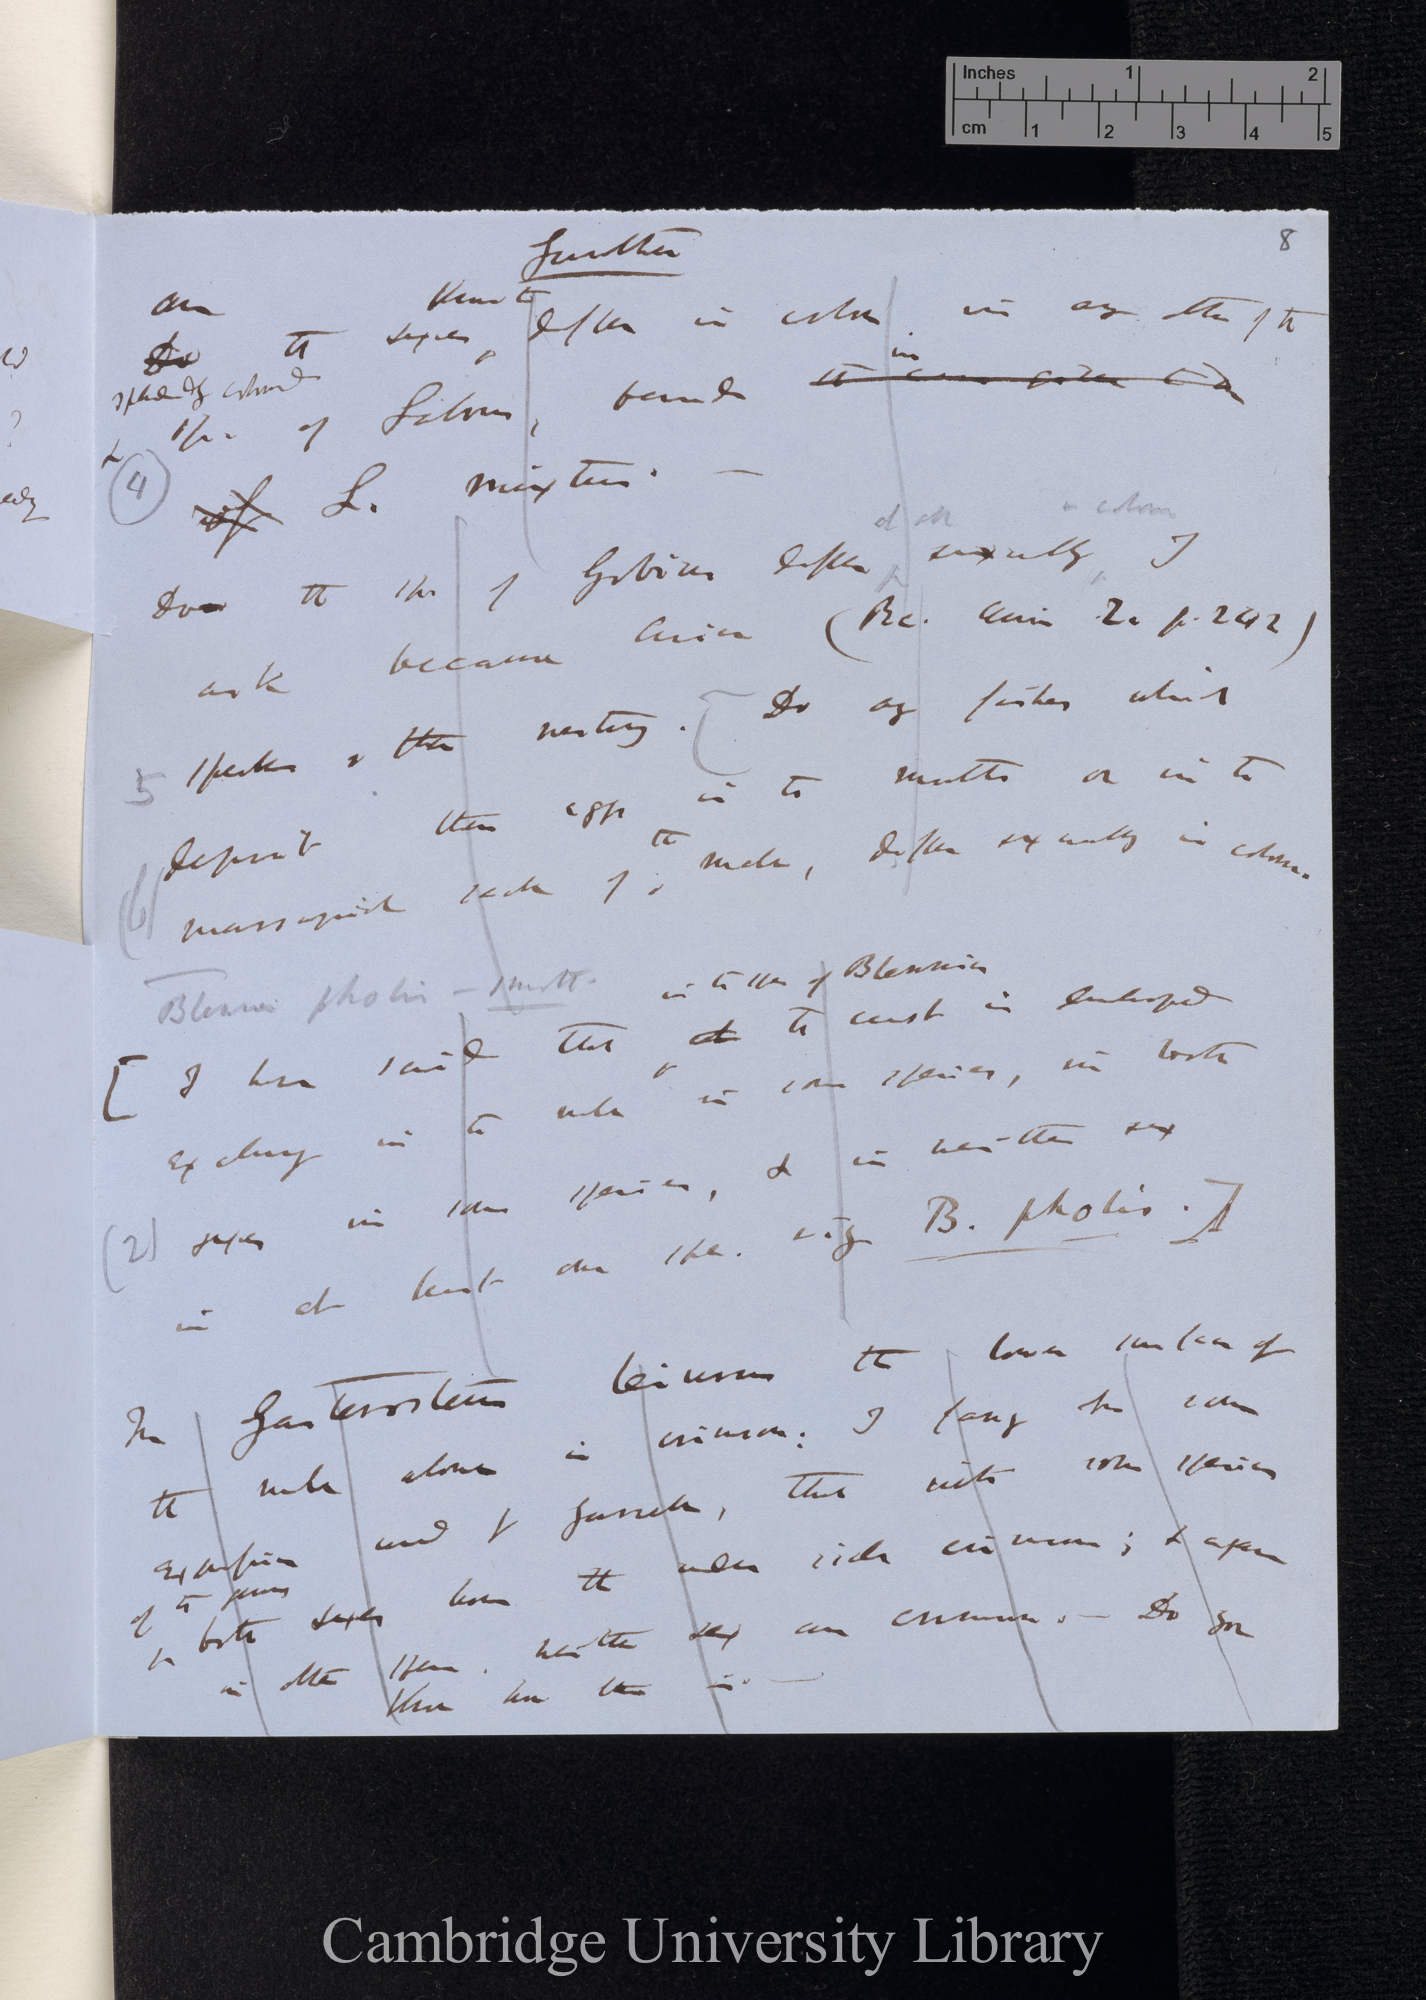 Inches 1 2
cm 1 2 3 4 5
8
Günther
are known to
Do the sexes, differ in colour, in any other of the
splendidly coloured
spe. of Labrus, besides in
(4) L. mixtus. —
at all in colour
Do the spe of Gobius differ, sexually, I
ask because Cuvier (Re. Anim 2. p. 242)
5 speaks of their nesting. [Do any fishes which
deposit their eggs in the mouth or in the
(6) marsupial sacks of the male, differ sexually in colour.
Blennius pholis — smooth.
in the spe of Blennius
[I have said that, the crest is developed
exclusively in the male in some species, in both
(2) sexes in some species, & in neither sex
in at least one spe. viz B. pholis.]
In Gasterosteus leiurus the lower surface of
the male alone is crimson; I fancy from some
expression used by Yarrell, that with some species
of the genus
both sexes have the under side crimson; & again
in other species neither sex are crimson. — Do you
know how this is. —
Cambridge University Library